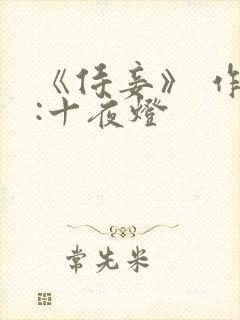 《侍妾》 作
:十夜燈
常先米